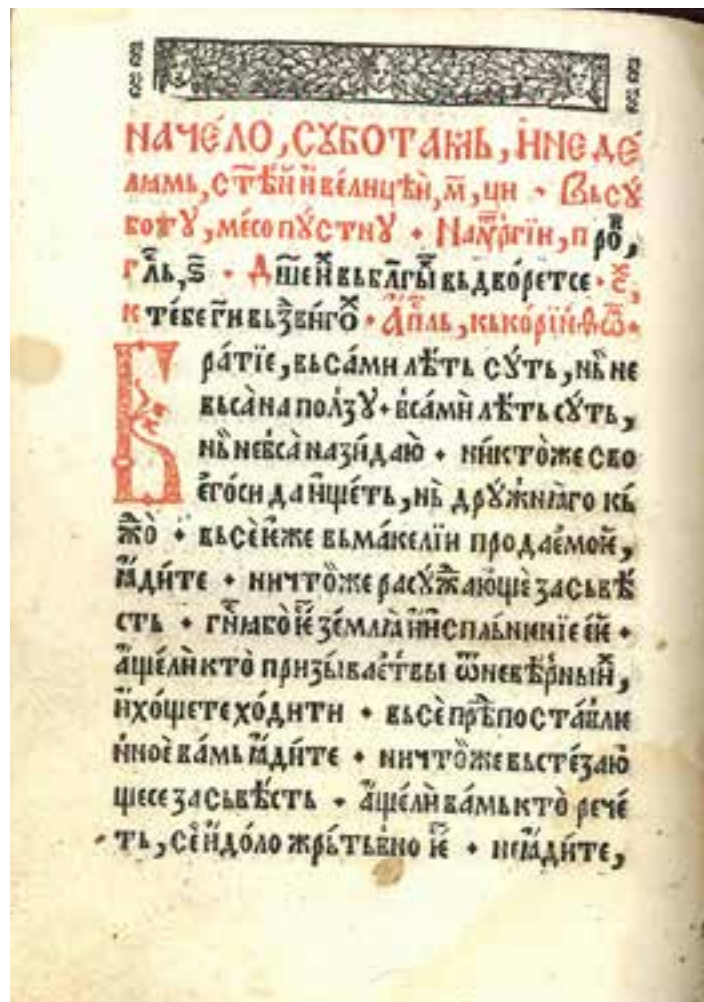 НАЧЕ́ЛО, СꙊБОТАМЬ, Ѝ НЕДЕ́
лꙗмь, ст҃ѣ́й и҆ вели́цѣй, м҃, ци · Вьсꙋ́
боту, месопꙋ́стнꙋ · На лѵтꙋргі́и, про̑к,
гл҃ь, ѕ҃ · Дш҃е и҆ вь бл҃гы̑хь вьдворе́тсе · с̑,
к тебе г҃и вьздвиго̑х · А҆пⷭ҇ль, кь кори́нѳѡ̑м·
Бра́тїе, вьса́ ми лѣ́ть сꙋ́ть, нь̀ не
вьса̀ на по́лзꙋ · вса́ мѝ лѣ́ть сꙋ́ть,
нь̀ не вса̀ назида́ю · ни́ктоже сво
его́си да и҆́щеть, нь̀ дрꙋ́жнꙗго кь
ж҃до̀ · вьсѐ и҆́же вь ма́келїи продае́мое,
ꙗ҆ди́те · ничто̀же расꙋж҃а́юще за сьвѣ́
сть · гн҃ꙗ бо̀ ѥ҆ зе́млꙗ и҆ и҆спльне́нїе е҆ѐ ·
а҆́ще лѝ кто̀ призы́ває́т вы ѿ невѣ́рныи҆,
и҆ хо́щете хо́дити · вьсѐ прѣ̑поста́влѥ
нноѐ ва́мь ꙗ҆ди́те · ничто̀же вьсте́заю
щесе за сьвѣ́сть · а҆́ще лѝ ва́мь кто̀ рече́
ть, сѐ и҆́доло жрь́твьно ѥ҆̑ · не ꙗ҆ди́те,